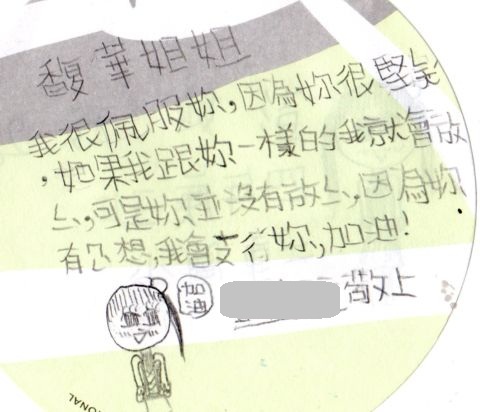 馥華姐姐
我很佩服妳,因為妳很堅
,如果我跟妳一樣的我就會放
,可是妳並沒有放,因為妳
有想,我會支妳,加油!
加油
敬上
ONAL